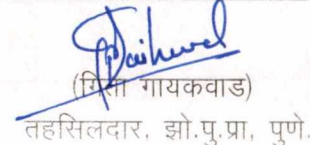 (गिता गायकवाड)
तहसिलदार, झो.पु.प्रा, पुणे.